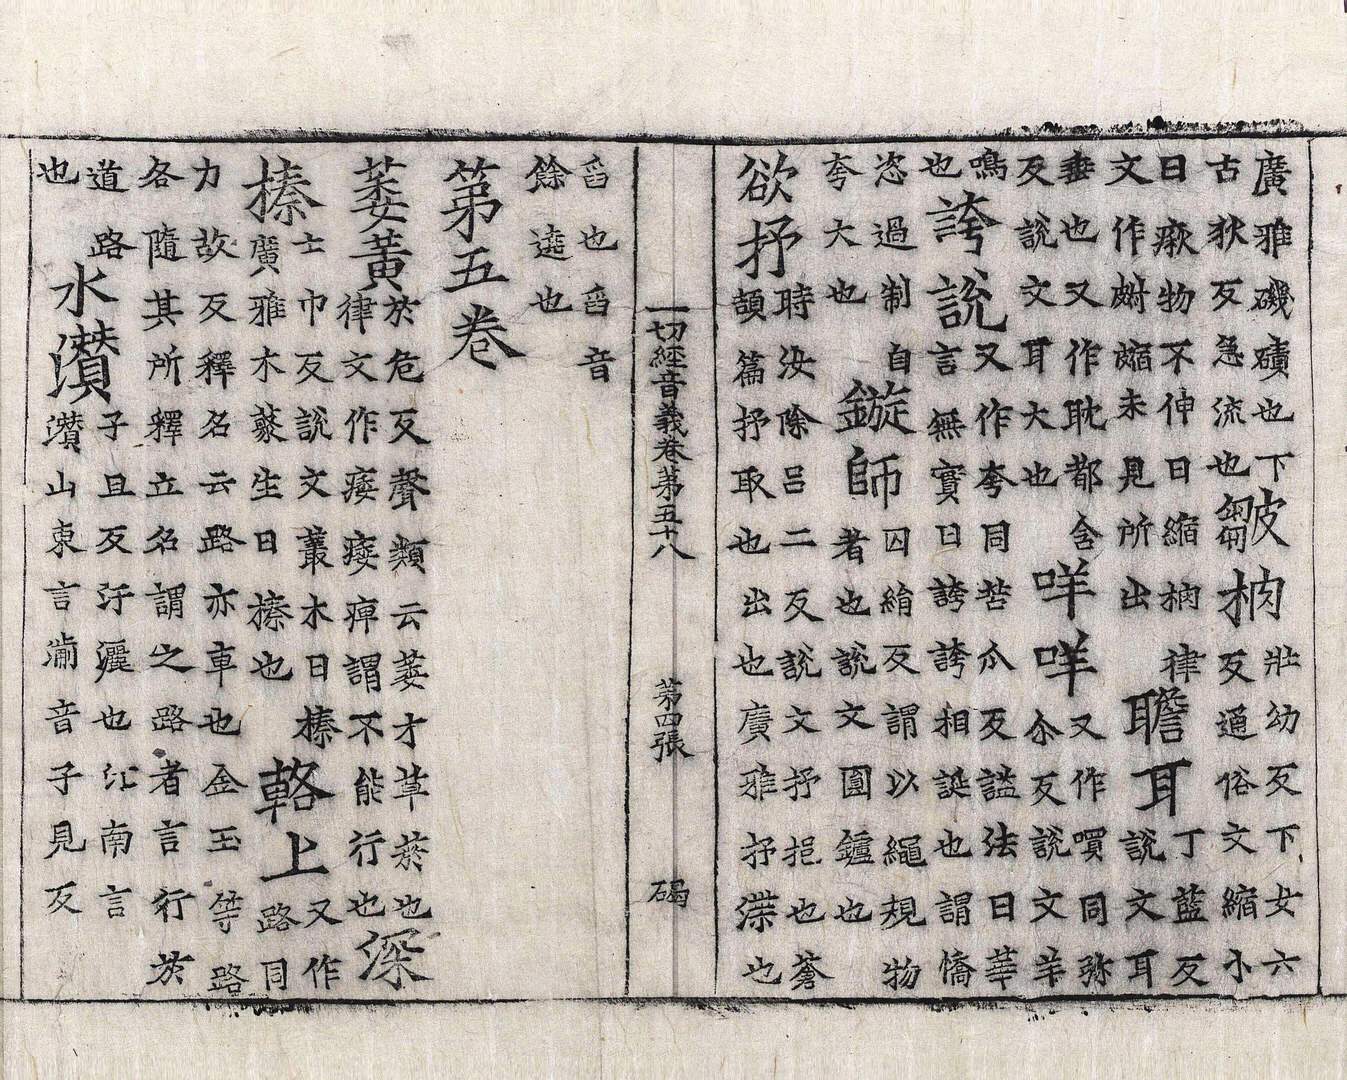 廣雅磯磧也下
古狄反急流也
皺朒
壯幼反下女六
反通俗文縮小
曰瘷物不伸曰縮朒律
文作未見所出
聸耳
丁藍反
說文耳
垂也又作耽都含
反說文耳大也
咩咩
又作哶同弥
尒反說文羊
鳴
也
誇說
又作夸同苦瓜反謚法曰華
言無實曰誇誇相誕也謂憍
恣過制自
夸大也
鏇師
囚絹反謂以繩規物
者也說文圓鑪也
欲抒
時汝除呂二反說文抒挹也蒼
頡篇抒取也出也廣雅抒渫也
一切經音義卷第五十八 第四張 碣
舀也舀音
餘遶也
第五卷
萎黃
於危反聲類云萎才草菸也
律文作痿痿痺謂不能行也
深
榛
士巾反說文叢木曰榛
廣雅木藂生曰榛也
輅上
又作
路同
力故反釋名云路亦車也金玉等路
各隨其所釋立名謂之路者言行於
道路
也
水灒
子旦反汙灑也江南言
灒山東言湔音子見反